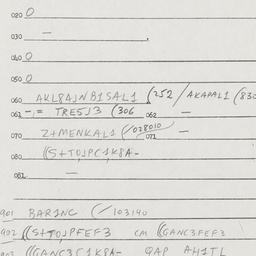 020 0
030 —
040 0
050 0
060 AKL8AJNB1SAL1 (252 / AKAPAL1 (830
061 - = TRE5J3 (306 062 —
070 Z+MENKAL1 (/028010 071 —
080 ((S+TOJPC1K8A-
081 —
901 BAR1NG (/103140
902 ((S+TOJPFEF3 CM ((GANC3FEF3
903 ((GANC3C1K8A- QAP AH1TL